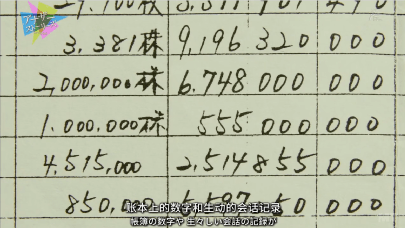 3,381株 9,196 320 000
2,000,000株 6.748 000 000
1.000.000株 555 000 000
4.515,000 2,514 855 000
850,000
账本上的数字和生动的会话记录
帳簿の数字や 生々しい会話の記録が